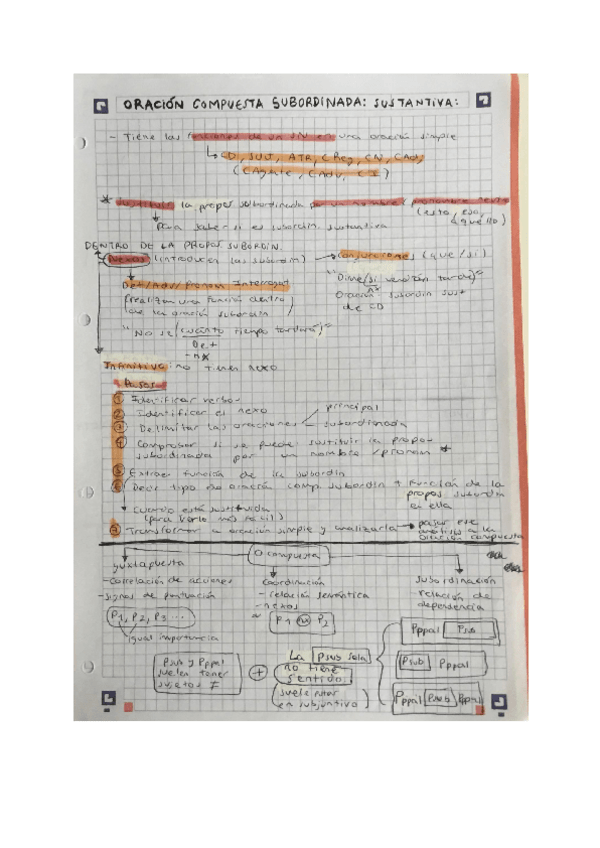 ORACIÓN COMPUESTA SUBORDINADA: SUSTANTIVA:
- Tiene las funciones de un SN en una oración simple
CD, SUJ, ATR, CReg, CN, CAdj
(CAgente, CAdv, CI)
* Sustituir la propos subordinada por un nombre / pronombre
(esto, eso, aquello)
Para saber si es subordin. sustantiva
DENTRO DE LA PROPOS SUBORDIN.
Nexos (introducen las subordin) → conjunciones (que/si)
"Dime (si vendrán tarde)"
Det/Adv/Pronom Interrogat
Oración subordin sust
de CD
(realizan una función dentro
de la oración subordin)
"No se (cuánto tiempo tardará)"
Det
-nx
Infinitivo: no tienen nexo
Pasos
1 Identificar verbo-
2 Identificar el nexo
3 Delimitar las oraciones principal
subordinada
4 Comprobar si se puede sustituir la propo-
subordinada por un nombre/pronom *
5 Extraer función de la subordin
6 Decir tipo de oración comp. subordin + función de la
propos subordin
en ella
Cuando está sustituida
(para verlo más fácil)
7 Transformar a oración simple y analizarla → pasar ese
análisis a la
oración compuesta
O compuesta
yuxtapuesta
- Correlación de acciones
- signos de puntuación
P1, P2, P3 ...
igual importancia
Coordinación
- relación semántica
- nexos
P1 P2
subordinación
relación de
dependencia
Pppal Psub
Psub Pppal
Pppal Psub Pppal
Psub y Pppal
suelen tener
sujetos ≠
+
La Psub sola
no tiene
sentido
(suele estar
en subjuntivo)